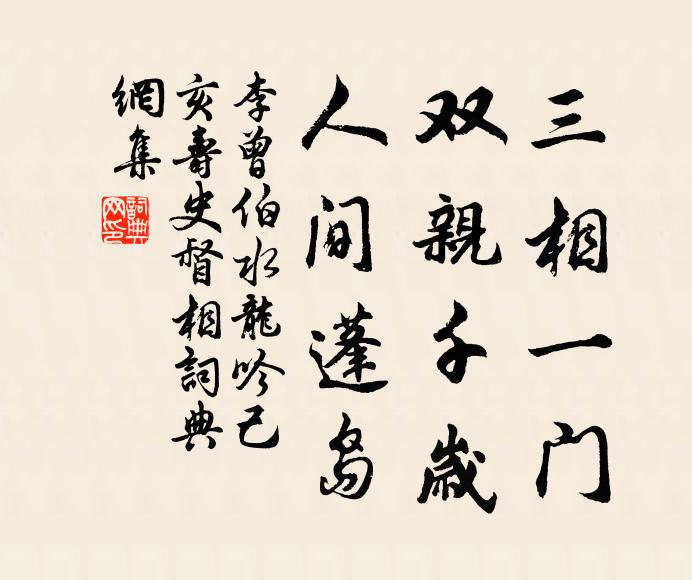 三相一门
双親千歲
人間蓬島
李曾伯水龍吟己
亥壽史督相詞典
網集
詞典网印